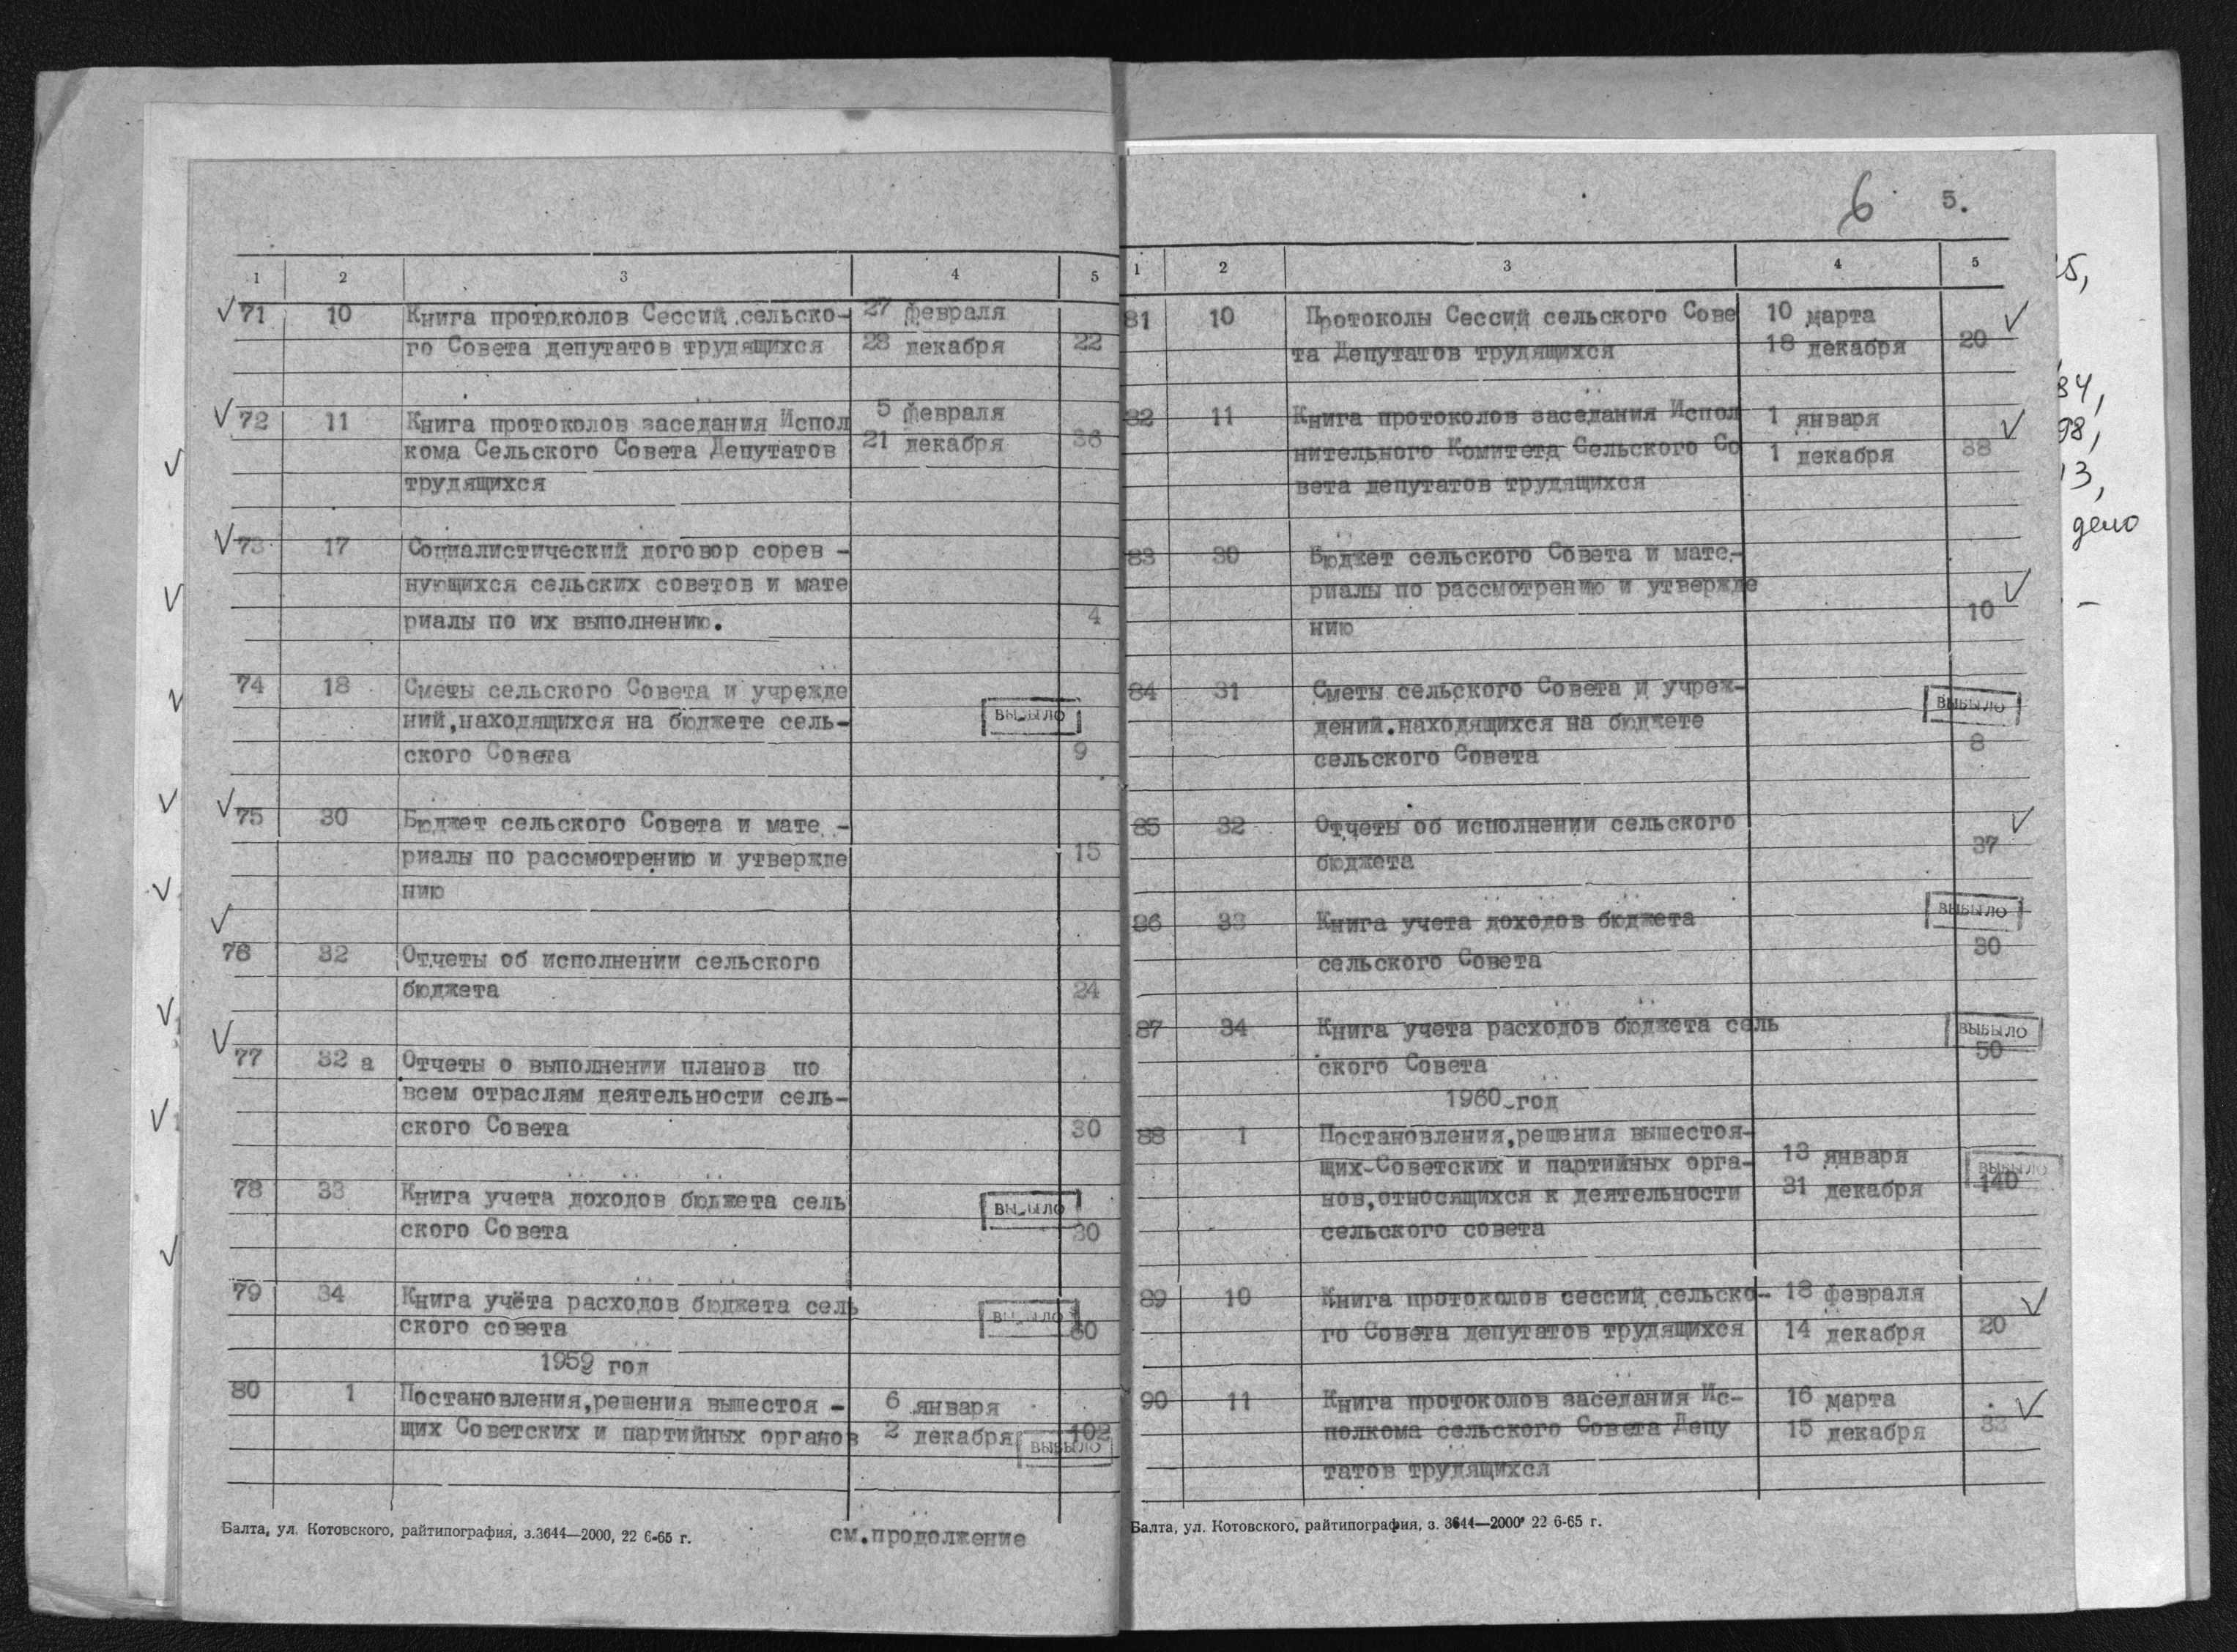 1 2 3 4 5
71 10 Книга протоколов Сессий сельско- 27 февраля
го Совета депутатов трудящихся 28 декабря 22
72 11 Книга протоколов заседания Испол 5 февраля
кома Сельского Совета Депутатов 21 декабря 36
трудящихся
73 17 Социалистический договор сорев -
нующихся сельских советов и мате
риалы по их выполнению. 4
74 18 Сметы сельского Совета и учрежде
ний,находящихся на бюджете сель- ВЫБЫЛО
ского Совета 9
75 30 Бюджет сельского Совета и мате -
риалы по рассмотрению и утвержде 15
нию
76 32 Отчеты об исполнении сельского
бюджета 24
77 32 а Отчеты о выполнении планов по
всем отраслям деятельности сель-
ского Совета 30
78 33 Книга учета доходов бюджета сель ВЫБЫЛО
ского Совета 30
79 34 Книга учёта расходов бюджета сель ВЫБЫЛО
ского совета 60
1959 год
80 1 Постановления,решения вышестоя - 6 января
щих Советских и партийных органов 2 декабря 102
ВЫБЫЛО
Балта, ул. Котовского, райтипография, з.3644—2000, 22 6-65 г.
см.продолжение
6 5.
1 2 3 4 5
81 10 Протоколы Сессий сельского Сове 10 марта
та Депутатов трудящихся 18 декабря 20
82 11 Книга протоколов заседания Испол 1 января
нительного Комитета Сельского Со 1 декабря 38
вета депутатов трудящихся
83 30 Бюджет сельского Совета и мате-
риалы по рассмотрению и утвержде
нию 10
84 31 Сметы сельского Совета и учреж- ВЫБЫЛО
дений.находящихся на бюджете
сельского Совета 8
85 32 Отчеты об исполнении сельского
бюджета 37
86 33 Книга учета доходов бюджета ВЫБЫЛО
сельского Совета 30
87 34 Книга учета расходов бюджета сель ВЫБЫЛО
ского Совета 50
1960-год
88 1 Постановления,решения вышестоя-
щих-Советских и партийных орга- 13 января ВЫБЫЛО
нов,относящихся к деятельности 31 декабря 140
сельского совета
89 10 Книга протоколов сессий сельско- 18 февраля
го Совета депутатов трудящихся 14 декабря 20
90 11 Книга протоколов заседания Ис- 16 марта
полкома сельского Совета Депу 15 декабря 33
татов трудящихся
Балта, ул. Котовского, райтипография, з. 3644—2000 22 6-65 г.
5,
84,
98,
13,
дело
-